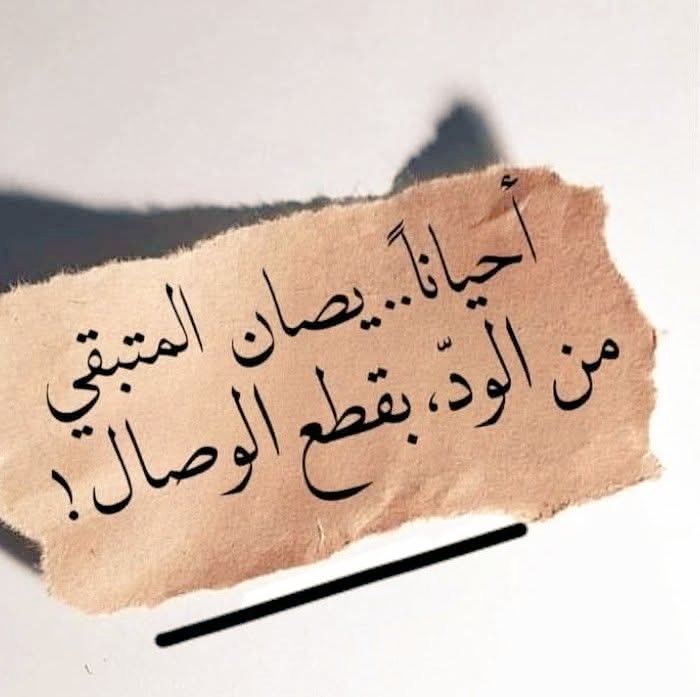 أحياناً..يصان المتبقي
من الودّ، بقطع الوصال!